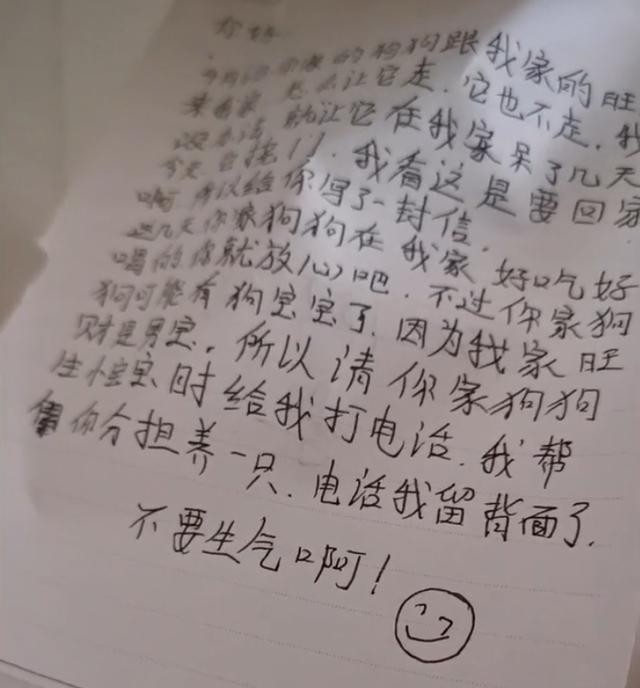 你好
你家的狗狗跟我家的旺
来我家 怎么让它走.它也不走.我
没办法 就让它在我家呆了几天
今天它挠门.我看这是要回家
啊 所以给你写了一封信.
这几天你家狗狗在我家好吃好
喝的你就放心吧.不过你家狗
狗可能有狗宝宝了.因为我家旺
财是男宝.所以请你家狗狗
生小宝宝时给我打电话.我帮
你分担养一只.电话我留背面了.
不要生气啊!